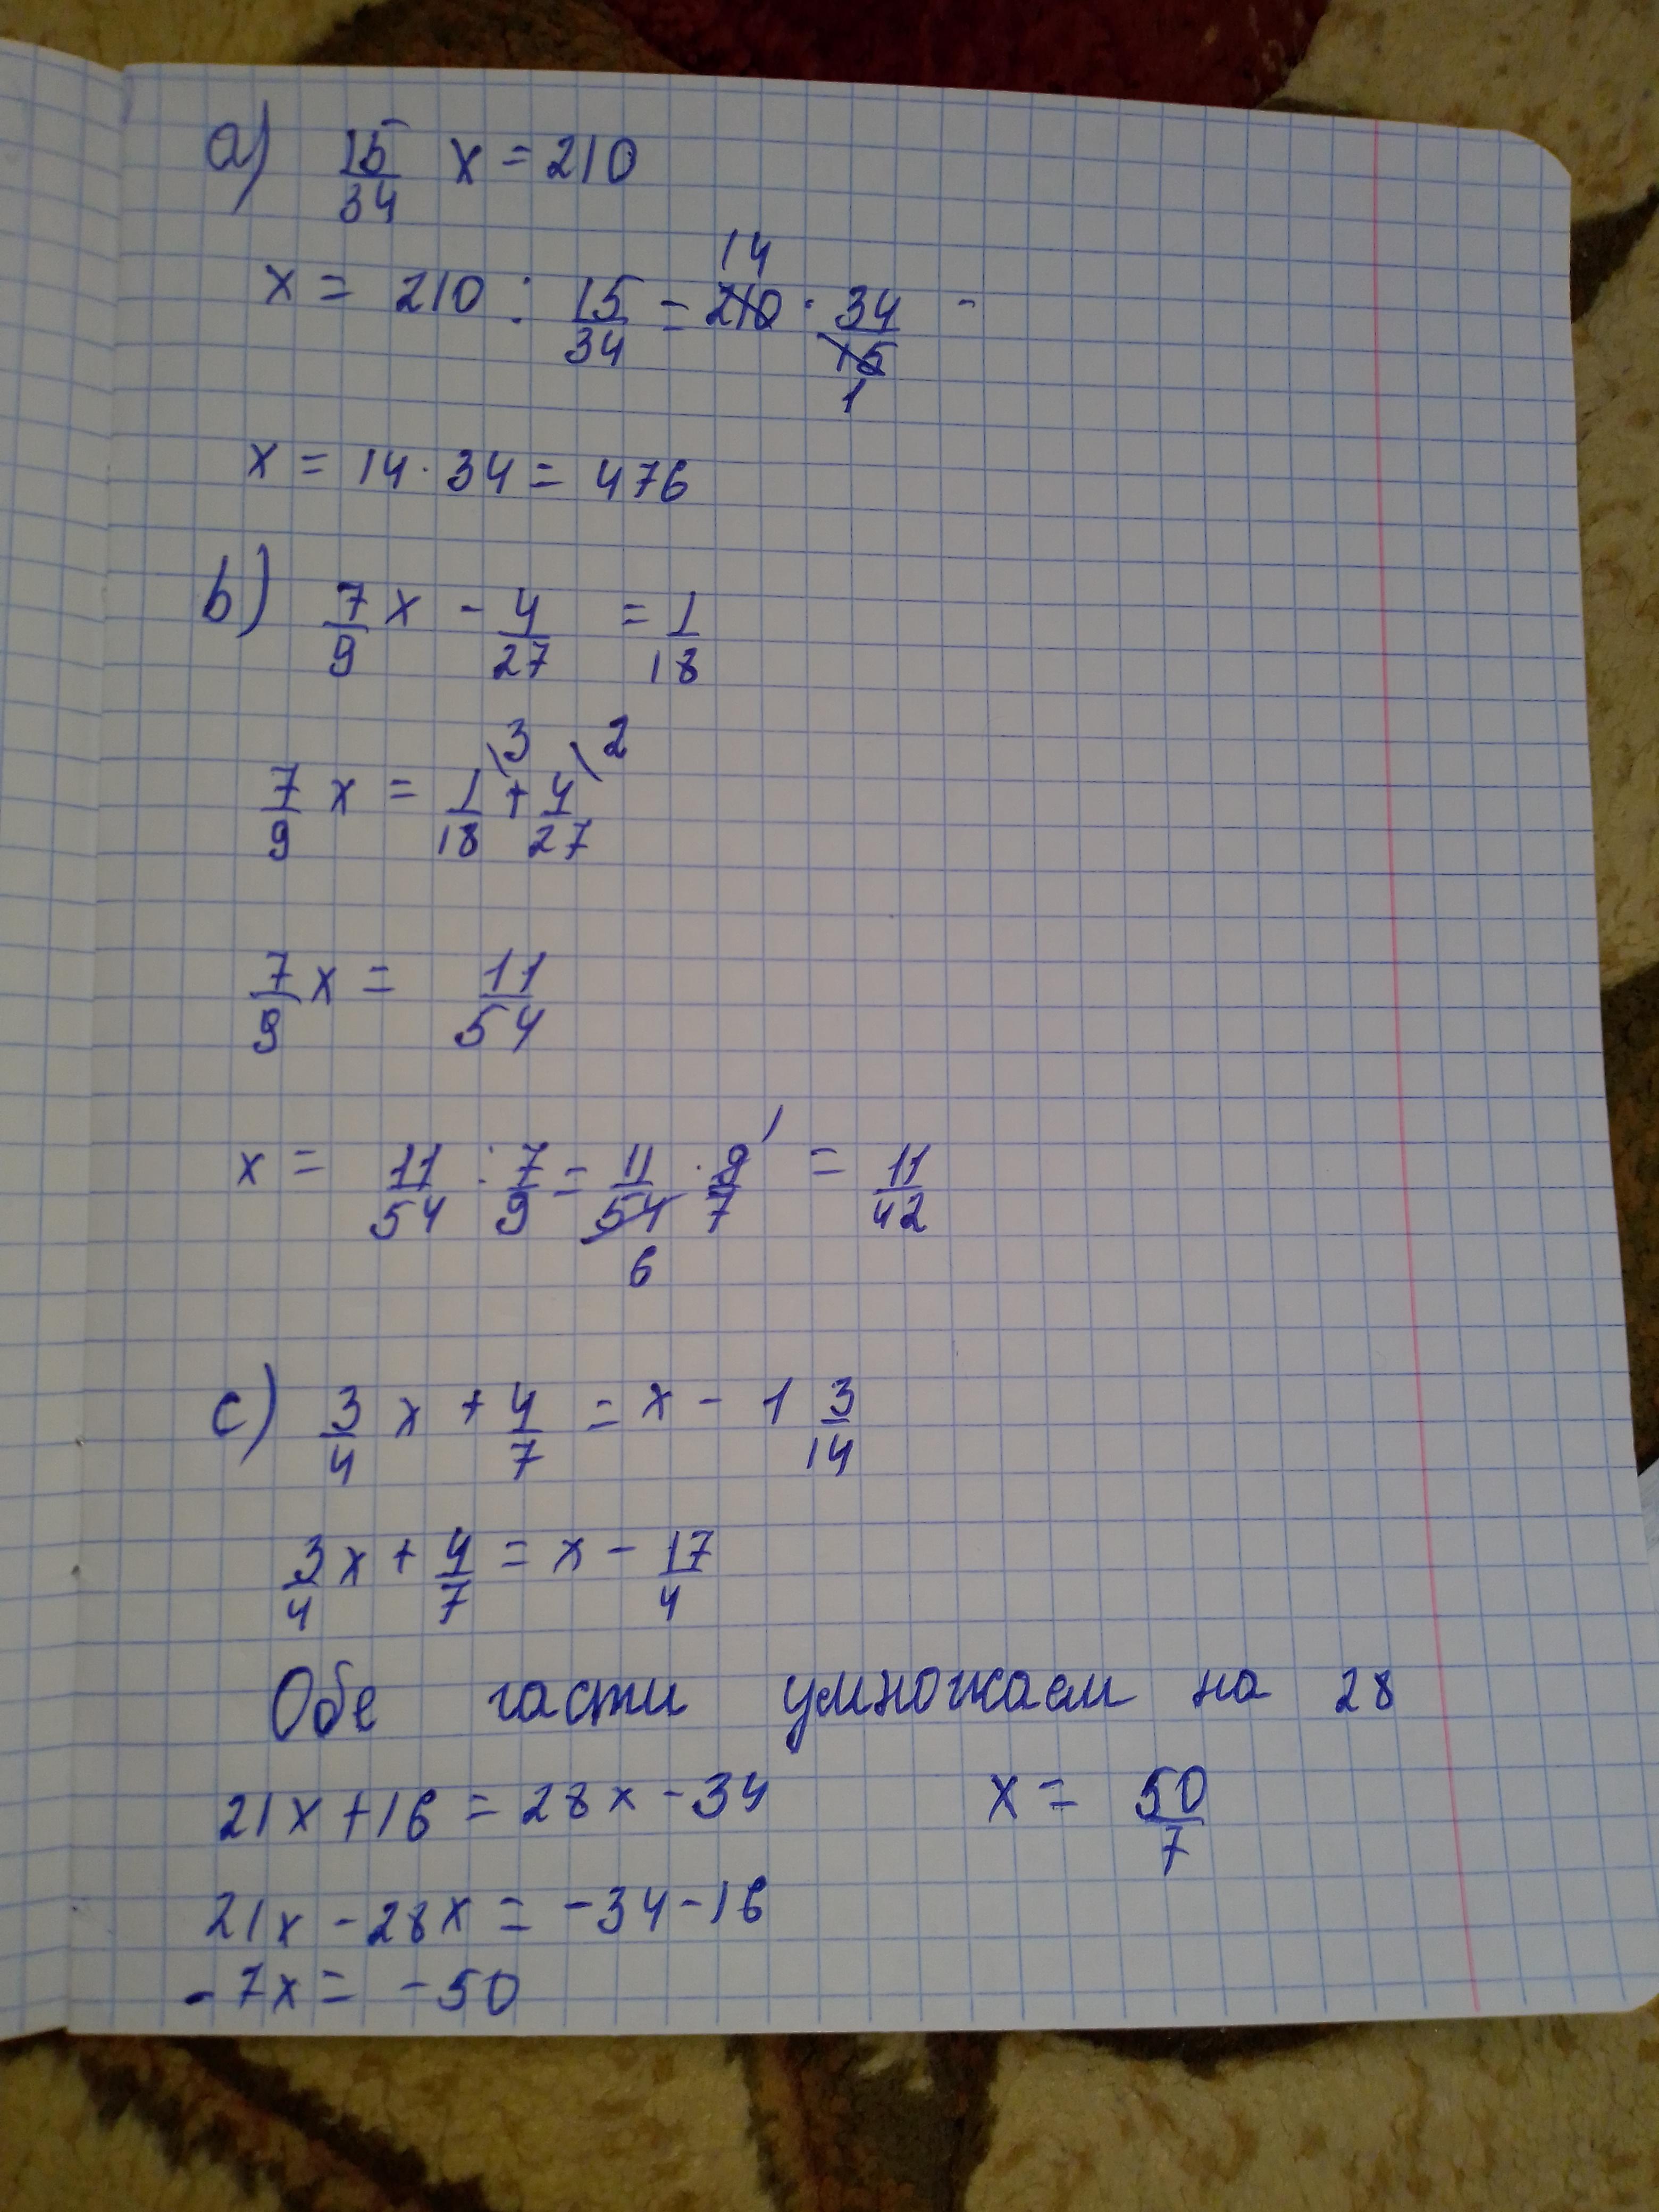 a) 15/34 x = 210
x = 210 : 15/34 = 210 · 34/15 =
14
1
x = 14 · 34 = 476
b) 7/9 x - 4/27 = 1/18
7/9 x = 1/18 \3 + 4/27 \2
7/9 x = 11/54
x = 11/54 : 7/9 = 11/54 · 9/7 = 11/42
1
6
c) 3/4 x + 4/7 = x - 1 3/14
3/4 x + 4/7 = x - 17/4
Обе части умножаем на 28
21x + 16 = 28x - 34
x = 50/7
21x - 28x = -34 - 16
-7x = -50